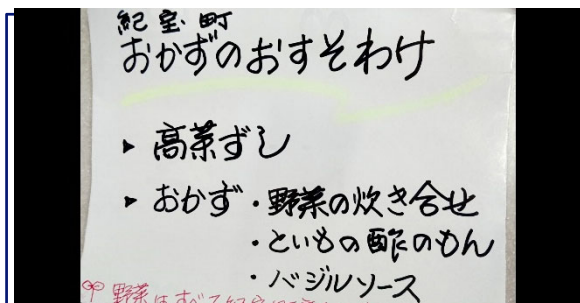 紀宝町
おかずのおすそわけ
▸ 高菜ずし
▸ おかず・野菜の炊き合せ
・といもの酢のもん
・バジルソース
野菜はすべて紀宝町産